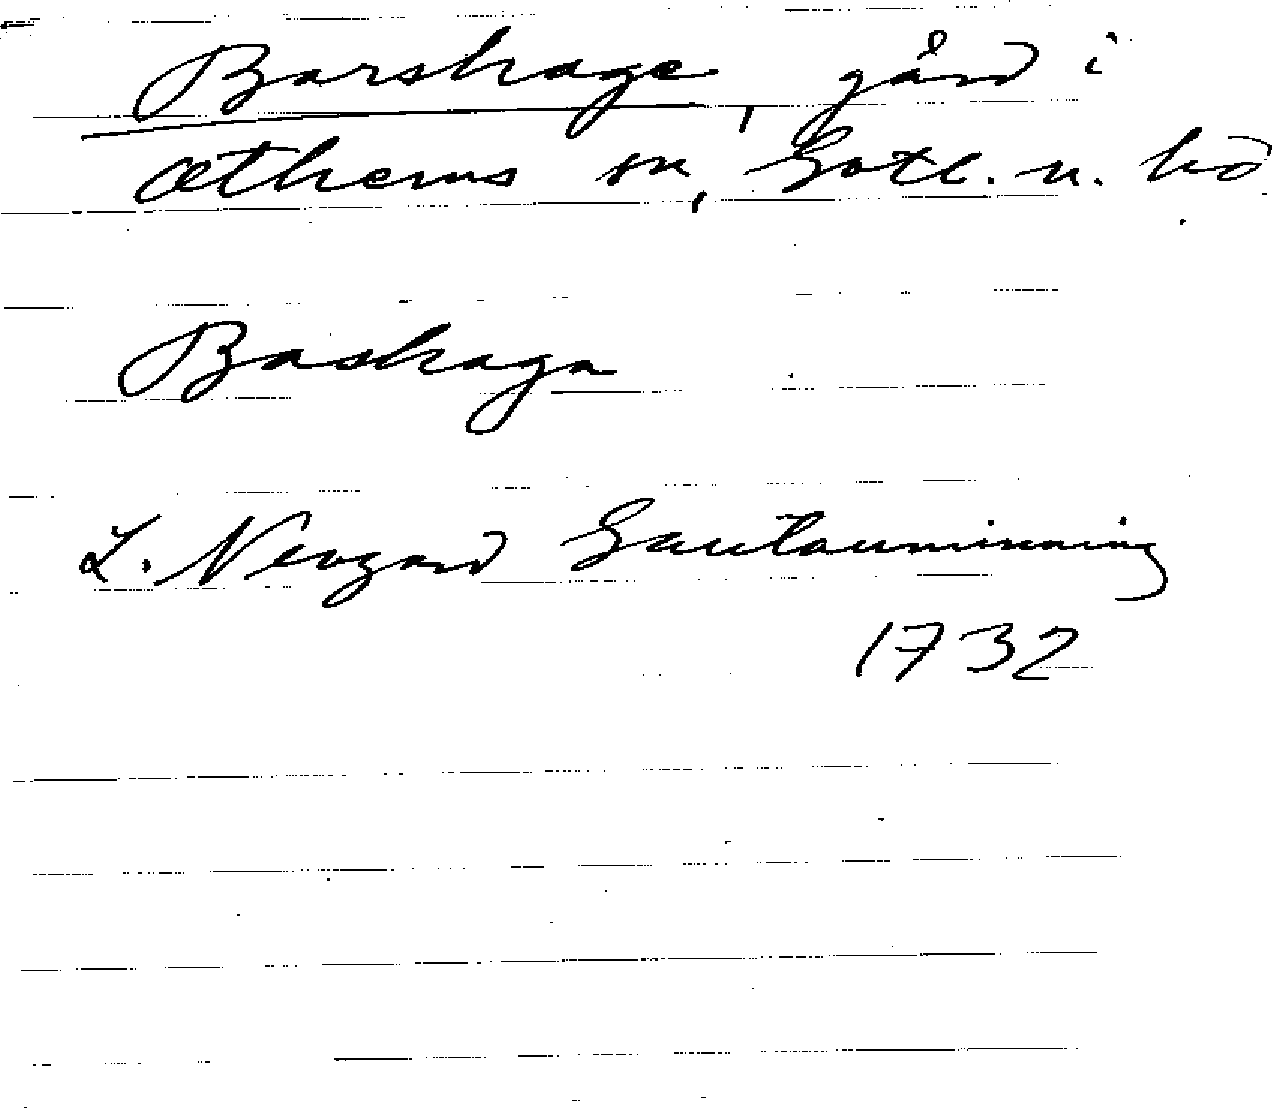 Barshage, gård i
Othems sn, Gotl. n. hd
Bashaga
L. Neogard Gautauminning
1732